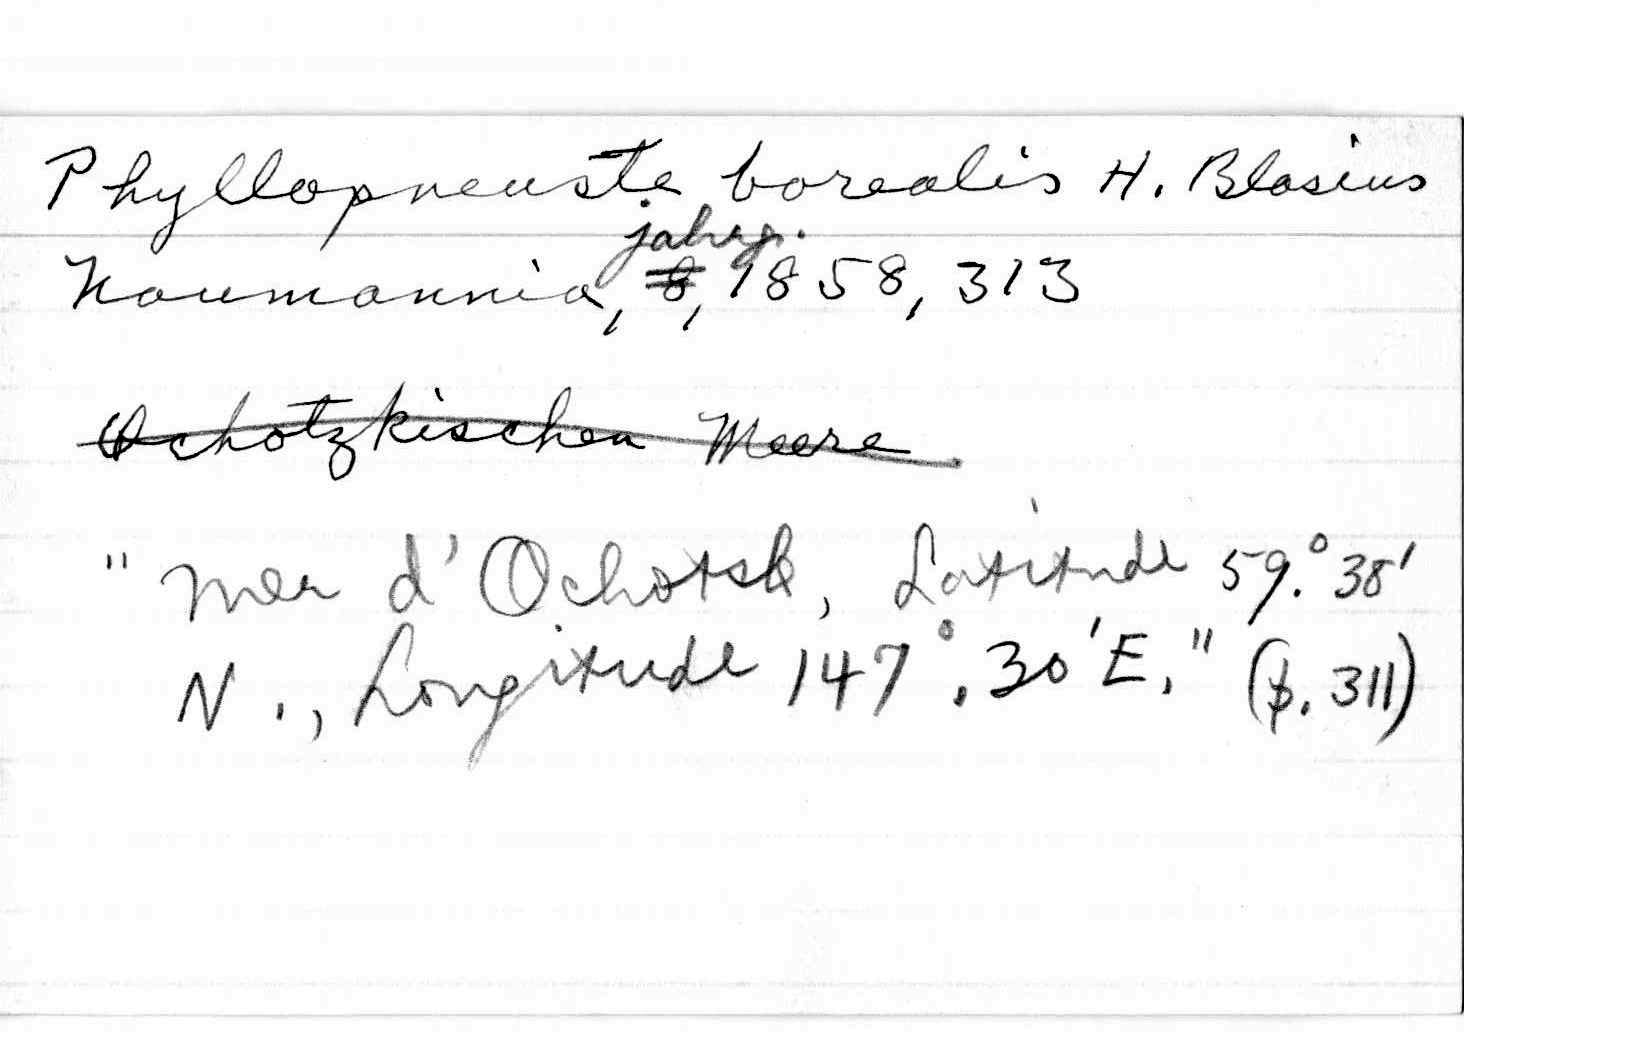 Phyllopneuste borealis H. Blasius
jahrg.
Naumannia, 8, 1858, 313
Ochotzkischen Meere
"mer d'Ochotsk, Latitude 59.° 38'
N., Longitude 147°. 30' E." (p. 311)